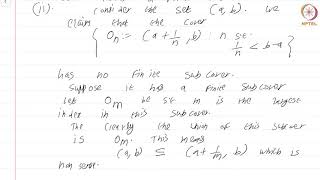 (ii). Consider the set (a, b). We
claim that the cover
{ On := (a + 1/n, b) : n s.t. 1/n < b-a }
has no finite subcover.
Suppose it has a finite subcover
Let Om be s.t m is the largest
index in this subcover.
The clearly the union of this subcover
is Om. This means
(a, b) ⊆ (a + 1/m, b) which is
non sense.
NPTEL